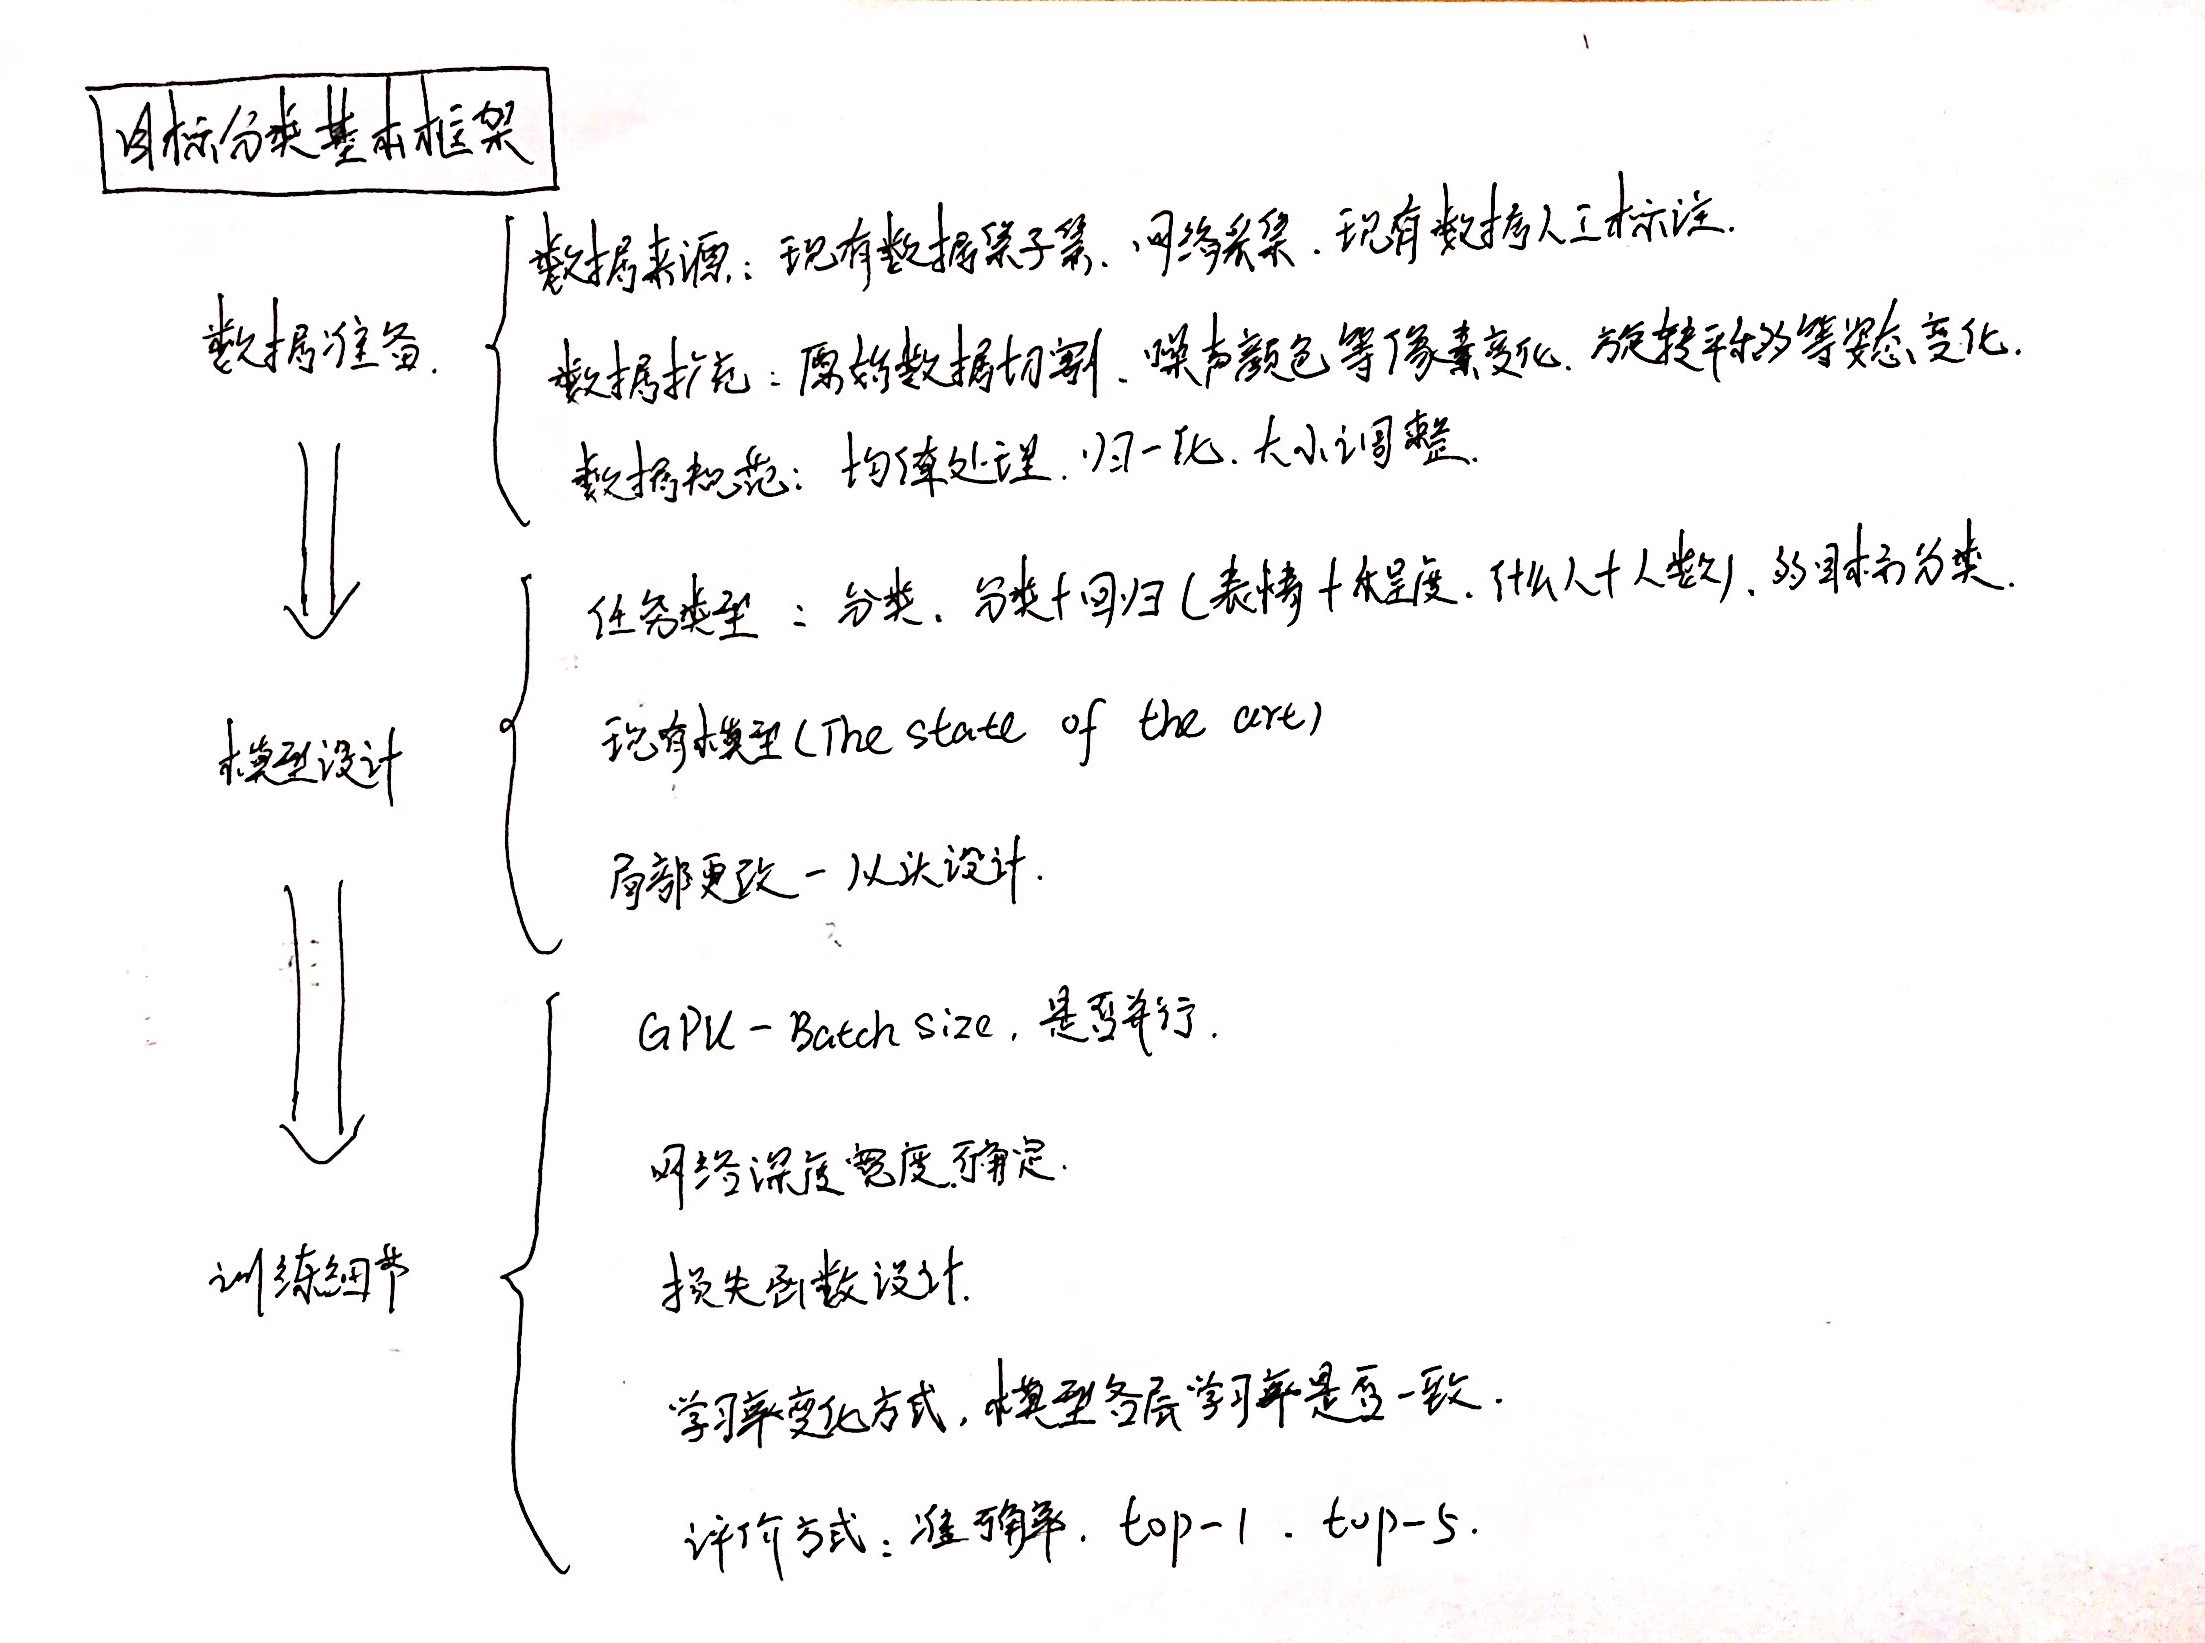 目标分类基本框架
数据准备.
数据来源：现有数据集子集、网络采集、现有数据人工标注.
数据扩充：原始数据切割、噪声颜色等像素变化、旋转平移等姿态变化.
数据规范：均值处理、归一化、大小调整.
模型设计
任务类型：分类、分类+回归(表情+程度、什么人+人数)、多目标分类.
现有模型(The state of the art)
局部更改－从头设计.
训练细节
GPU－Batch size, 是否并行.
网络深度宽度确定.
损失函数设计.
学习率变化方式, 模型各层学习率是否一致.
评价方式：准确率、top-1、top-5.